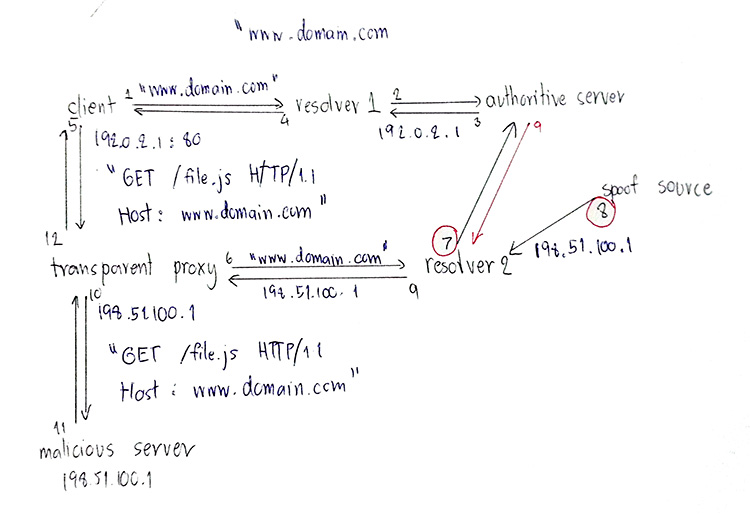 "www.domain.com
1 "www.domain.com" 2
client resolver 1 authoritive server
5 4 192.0.2.1 3 9
192.0.2.1:80
"GET /file.js HTTP/1.1
Host: www.domain.com"
spoof source
8
12 7 198.51.100.1
6 "www.domain.com"
transparent proxy resolver 2
198.51.100.1 9
10
198.51.100.1
"GET /file.js HTTP/1.1
Host: www.domain.com"
11
malicious server
198.51.100.1